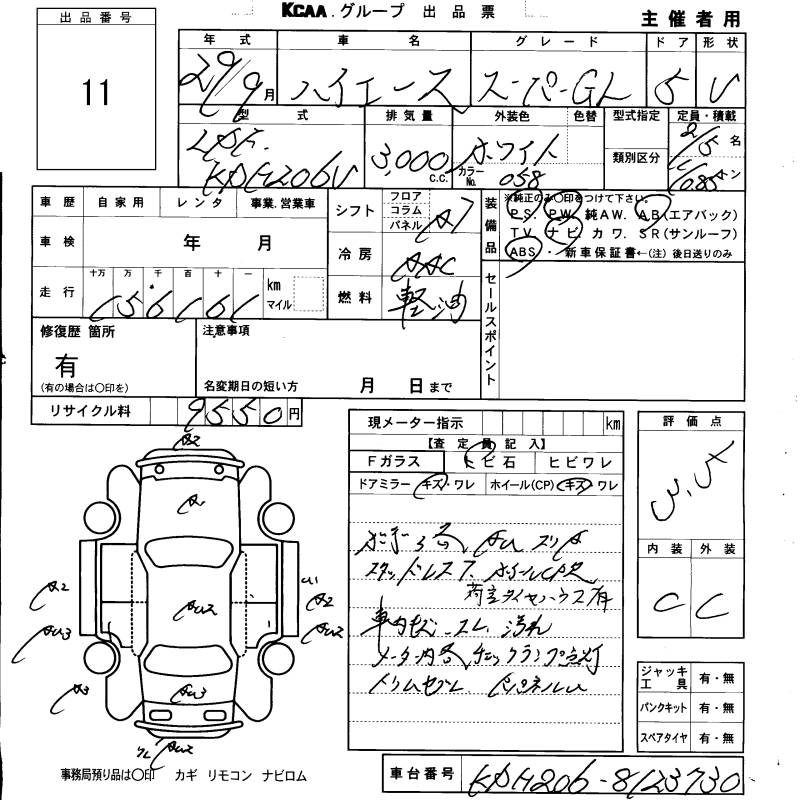 KCAA.グループ 出品票
主催者用
出品番号
11
年式 車名 グレード ドア 形状
29/9月 ハイエース スーパーGL 5 V
型式 排気量 外装色 色替 型式指定 定員・積載
LDF.
KDH206V
3,000 C.C.
ホワイト
カラーNo. 058
類別区分
2/5 名
トン
車歴 自家用 レンタ 事業.営業車
車検 年 月
走行 十万 万 千 百 十 一 km マイル
156161
シフト フロア コラム パネル
冷房 AAC
燃料 軽油
装備品
※純正のみ○印をつけて下さい。
P.S. P.W. 純A.W. A.B(エアバック)
T.V. ナビ. カワ. S.R(サンルーフ)
ABS ・ 新車保証書←(注) 後日送りのみ
セールスポイント
修復歴 箇所
有
(有の場合は○印を)
注意事項
名変期日の短い方 月 日まで
リサイクル料 9550円
現メーター指示 km
【査定員記入】
Fガラス トビ石 ヒビワレ
ドアミラー キズ・ワレ ホイール(CP) キズ・ワレ
スタッドレス
荷室タイヤハウス有
車内 スレ 汚れ
メーター内 チェックランプ点灯
評価点
3.5
内装 外装
C C
A2
A2
AU3
A3
AU2
AU3
U1
A2
AU2
AU2
ジャッキ工具 有・無
パンクキット 有・無
スペアタイヤ 有・無
事務局預り品は○印 カギ リモコン ナビロム
車台番号 KDH206-8123730